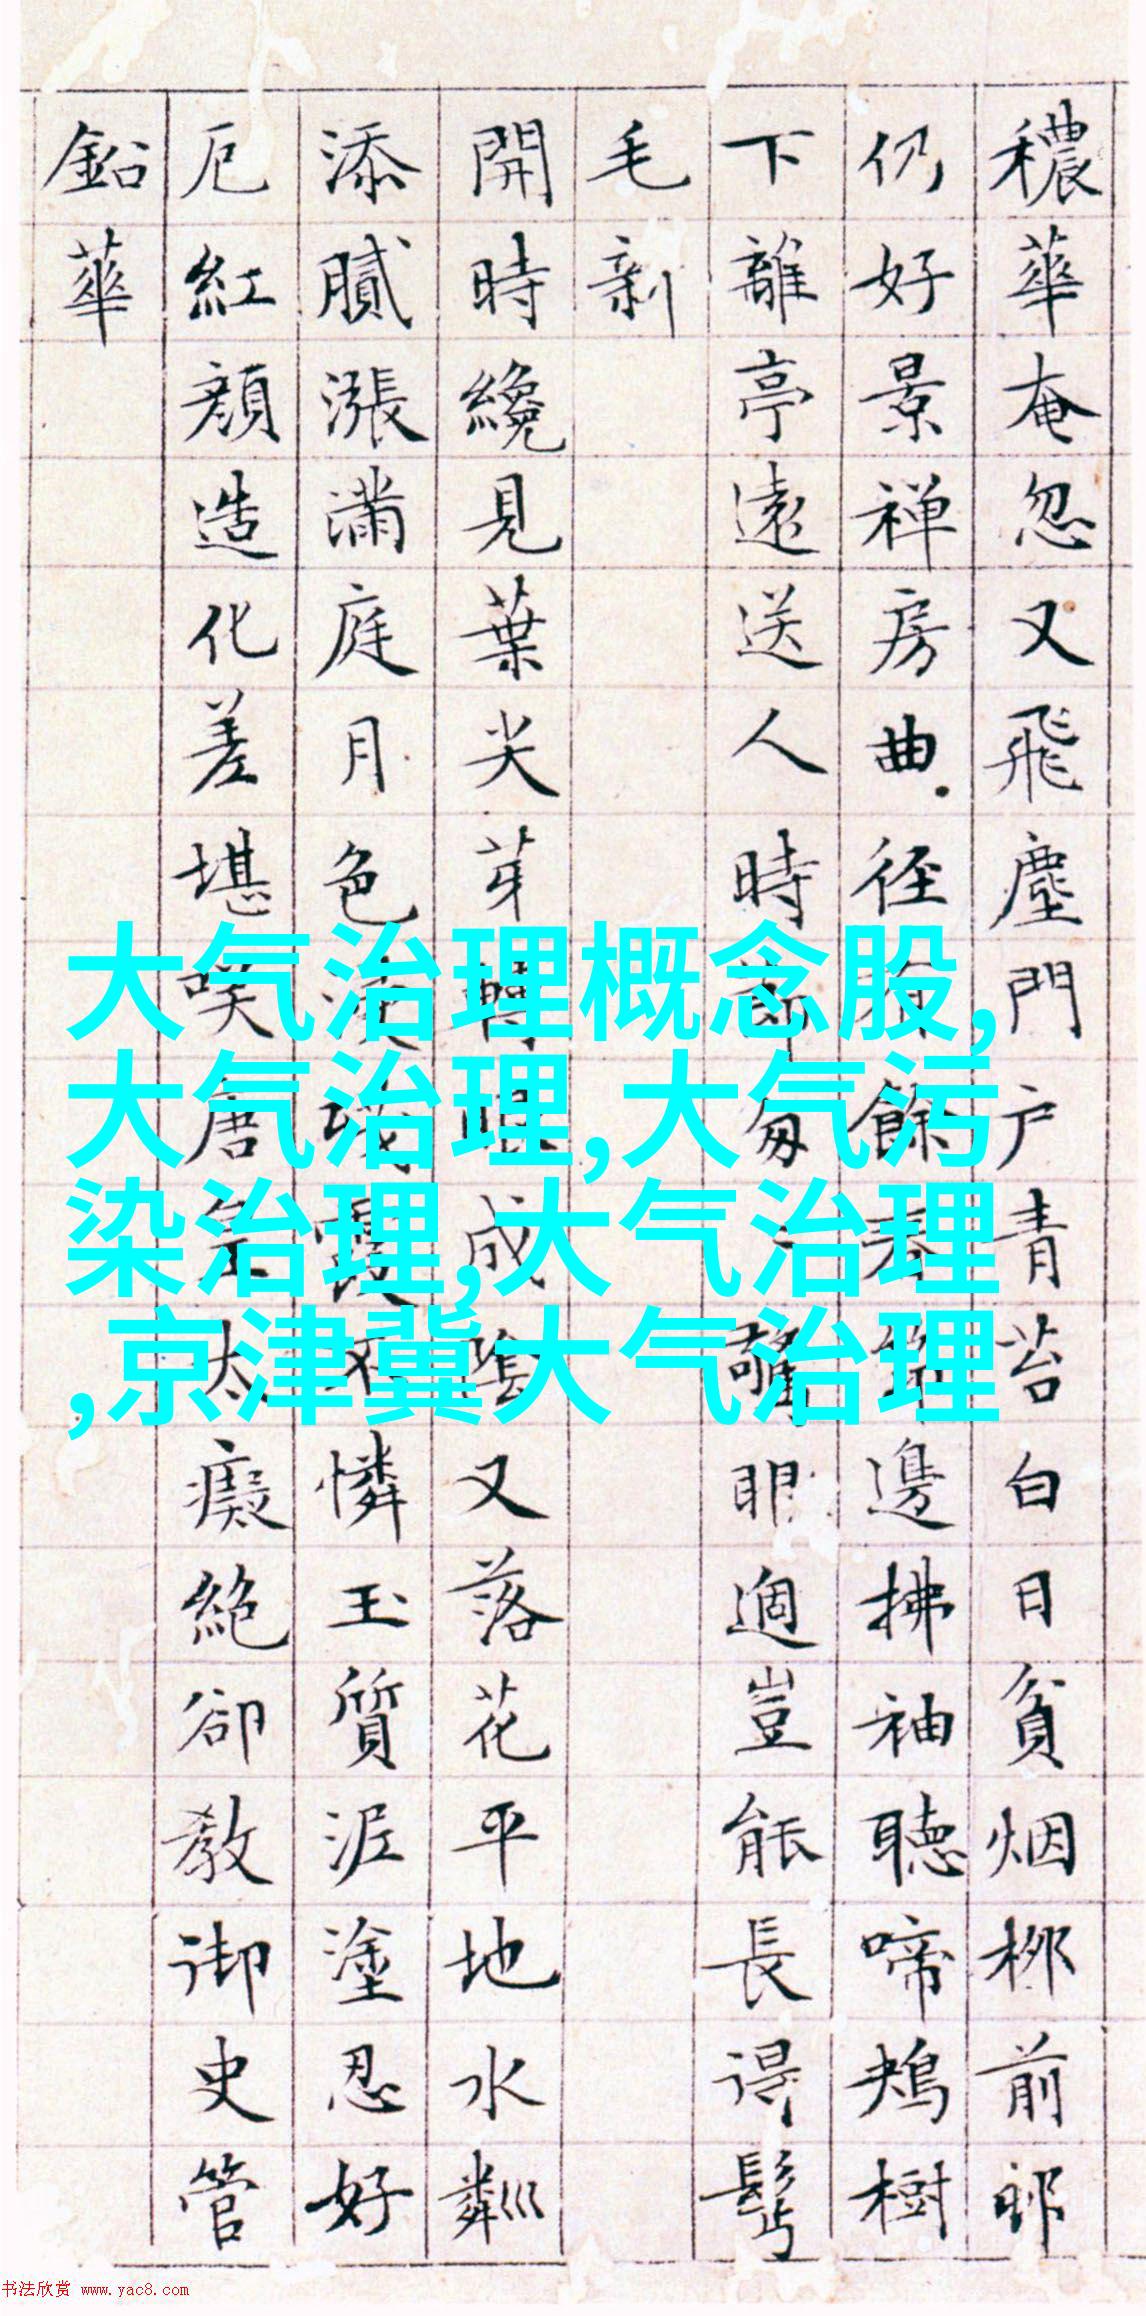 穠華奄忽又飛塵門户青苔白日貧烟柳前郎
仍好景禅房曲径餘春邊拂袖聽啼鴂樹
下離亭遠送人時節匆驚眼過豈能長得鬓
毛新
開時纔見葉尖芽轉眼成陰又落花平地水粼巛
添膩漲滿庭月色淡殘霞不憐玉質泥塗忍好
厄紅顔造化差堪嘆唐突太癡絕卻教御史管
鉛華
大气治理概念股,
大气治理,大气污
染治理,大气治理
,京津冀大气治理
书法欣赏 www.yac8.com